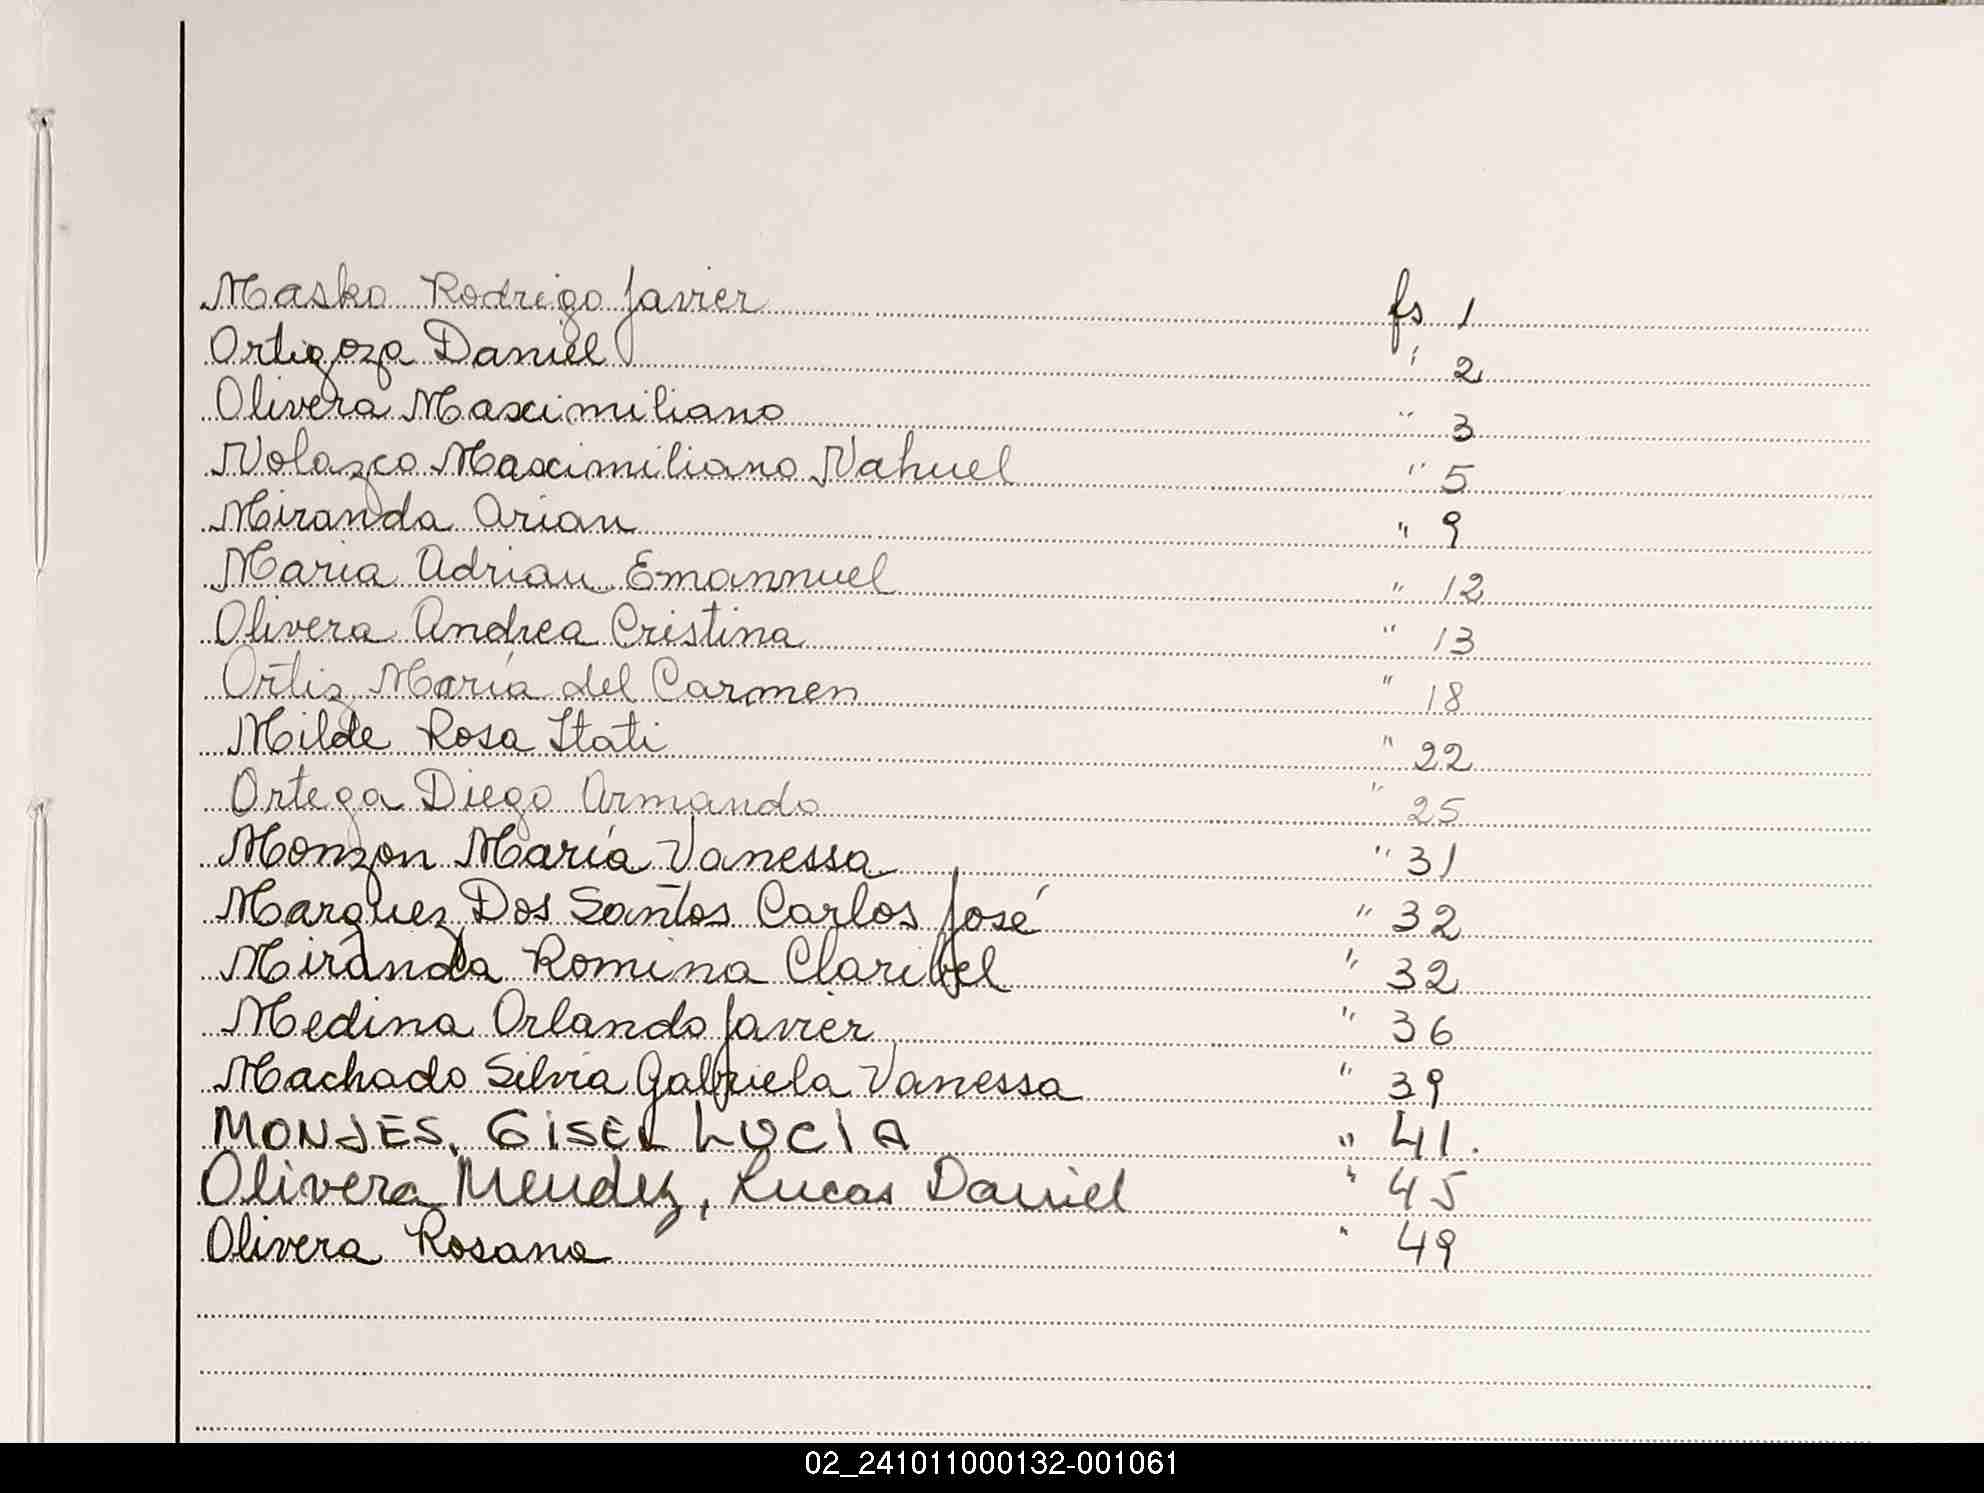 Masko Rodrigo Javier fs 1
Ortigoza Daniel " 2
Olivera Maximiliano " 3
Nolazco Maximiliano Nahuel " 5
Miranda Arian " 9
Maria Adrian Emannuel " 12
Olivera Andrea Cristina " 13
Ortiz María del Carmen " 18
Milde Rosa Itati " 22
Ortega Diego Armando " 25
Monzon María Vanessa " 31
Marquez Dos Santos Carlos José " 32
Miranda Romina Claribel " 32
Medina Orlando Javier " 36
Machado Silvia Gabriela Vanessa " 39
MONJES, GISEL LUCIA " 41.
Olivera Mendez, Lucas Daniel " 45
Olivera Rosana " 49
02_241011000132-001061